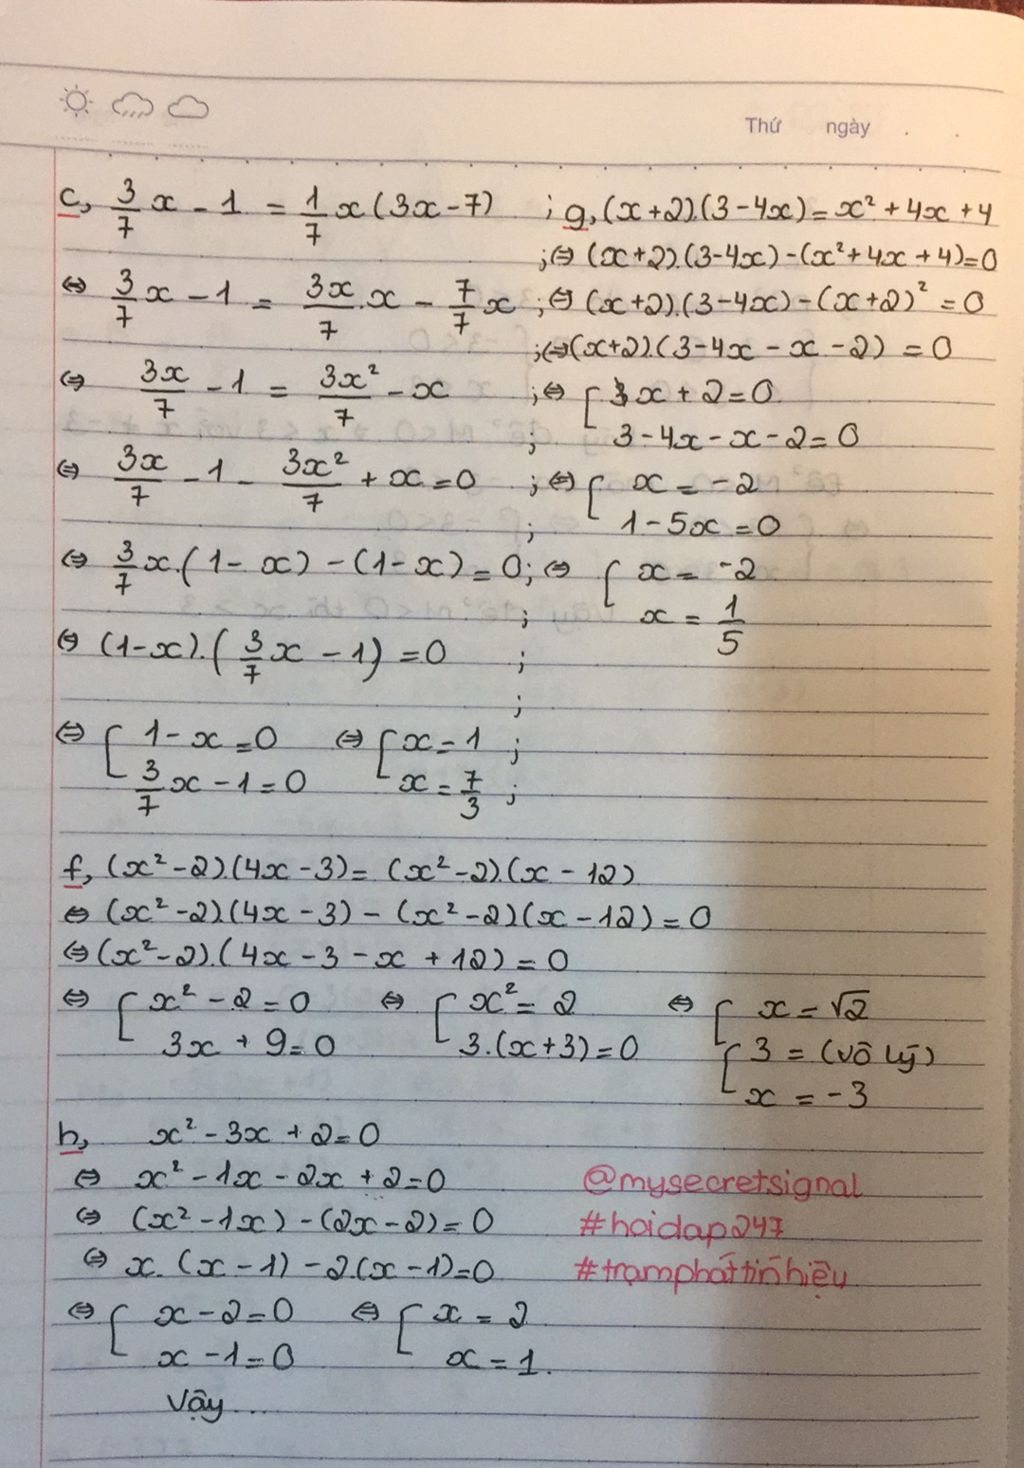 Thứ ngày . .
c, 3/7 x - 1 = 1/7 x (3x - 7)
⇔ 3/7 x - 1 = 3x/7 . x - 7/7 x
⇔ 3x/7 - 1 = 3x²/7 - x
⇔ 3x/7 - 1 - 3x²/7 + x = 0
⇔ 3/7 x.(1 - x) - (1 - x) = 0
⇔ (1 - x).(3/7 x - 1) = 0
⇔ [ 1 - x = 0 ⇔ [ x = 1
3/7 x - 1 = 0 x = 7/3
; g, (x + 2).(3 - 4x) = x² + 4x + 4
; ⇔ (x + 2).(3 - 4x) - (x² + 4x + 4) = 0
; ⇔ (x + 2).(3 - 4x) - (x + 2)² = 0
; ⇔ (x + 2).(3 - 4x - x - 2) = 0
; ⇔ [ x + 2 = 0
; 3 - 4x - x - 2 = 0
; ⇔ [ x = -2
; 1 - 5x = 0
; ⇔ [ x = -2
; x = 1/5
;
;
;
;
f, (x² - 2).(4x - 3) = (x² - 2).(x - 12)
⇔ (x² - 2).(4x - 3) - (x² - 2)(x - 12) = 0
⇔ (x² - 2).(4x - 3 - x + 12) = 0
⇔ [ x² - 2 = 0 ⇔ [ x² = 2 ⇔ [ x = √2
3x + 9 = 0 3.(x + 3) = 0 [ 3 = (vô lý)
x = -3
h, x² - 3x + 2 = 0
⇔ x² - 1x - 2x + 2 = 0
⇔ (x² - 1x) - (2x - 2) = 0
⇔ x.(x - 1) - 2.(x - 1) = 0
⇔ [ x - 2 = 0 ⇔ [ x = 2
x - 1 = 0 x = 1.
Vậy ...
@mysecretsignal
#hoidap247
#trạmpháttínhiệu